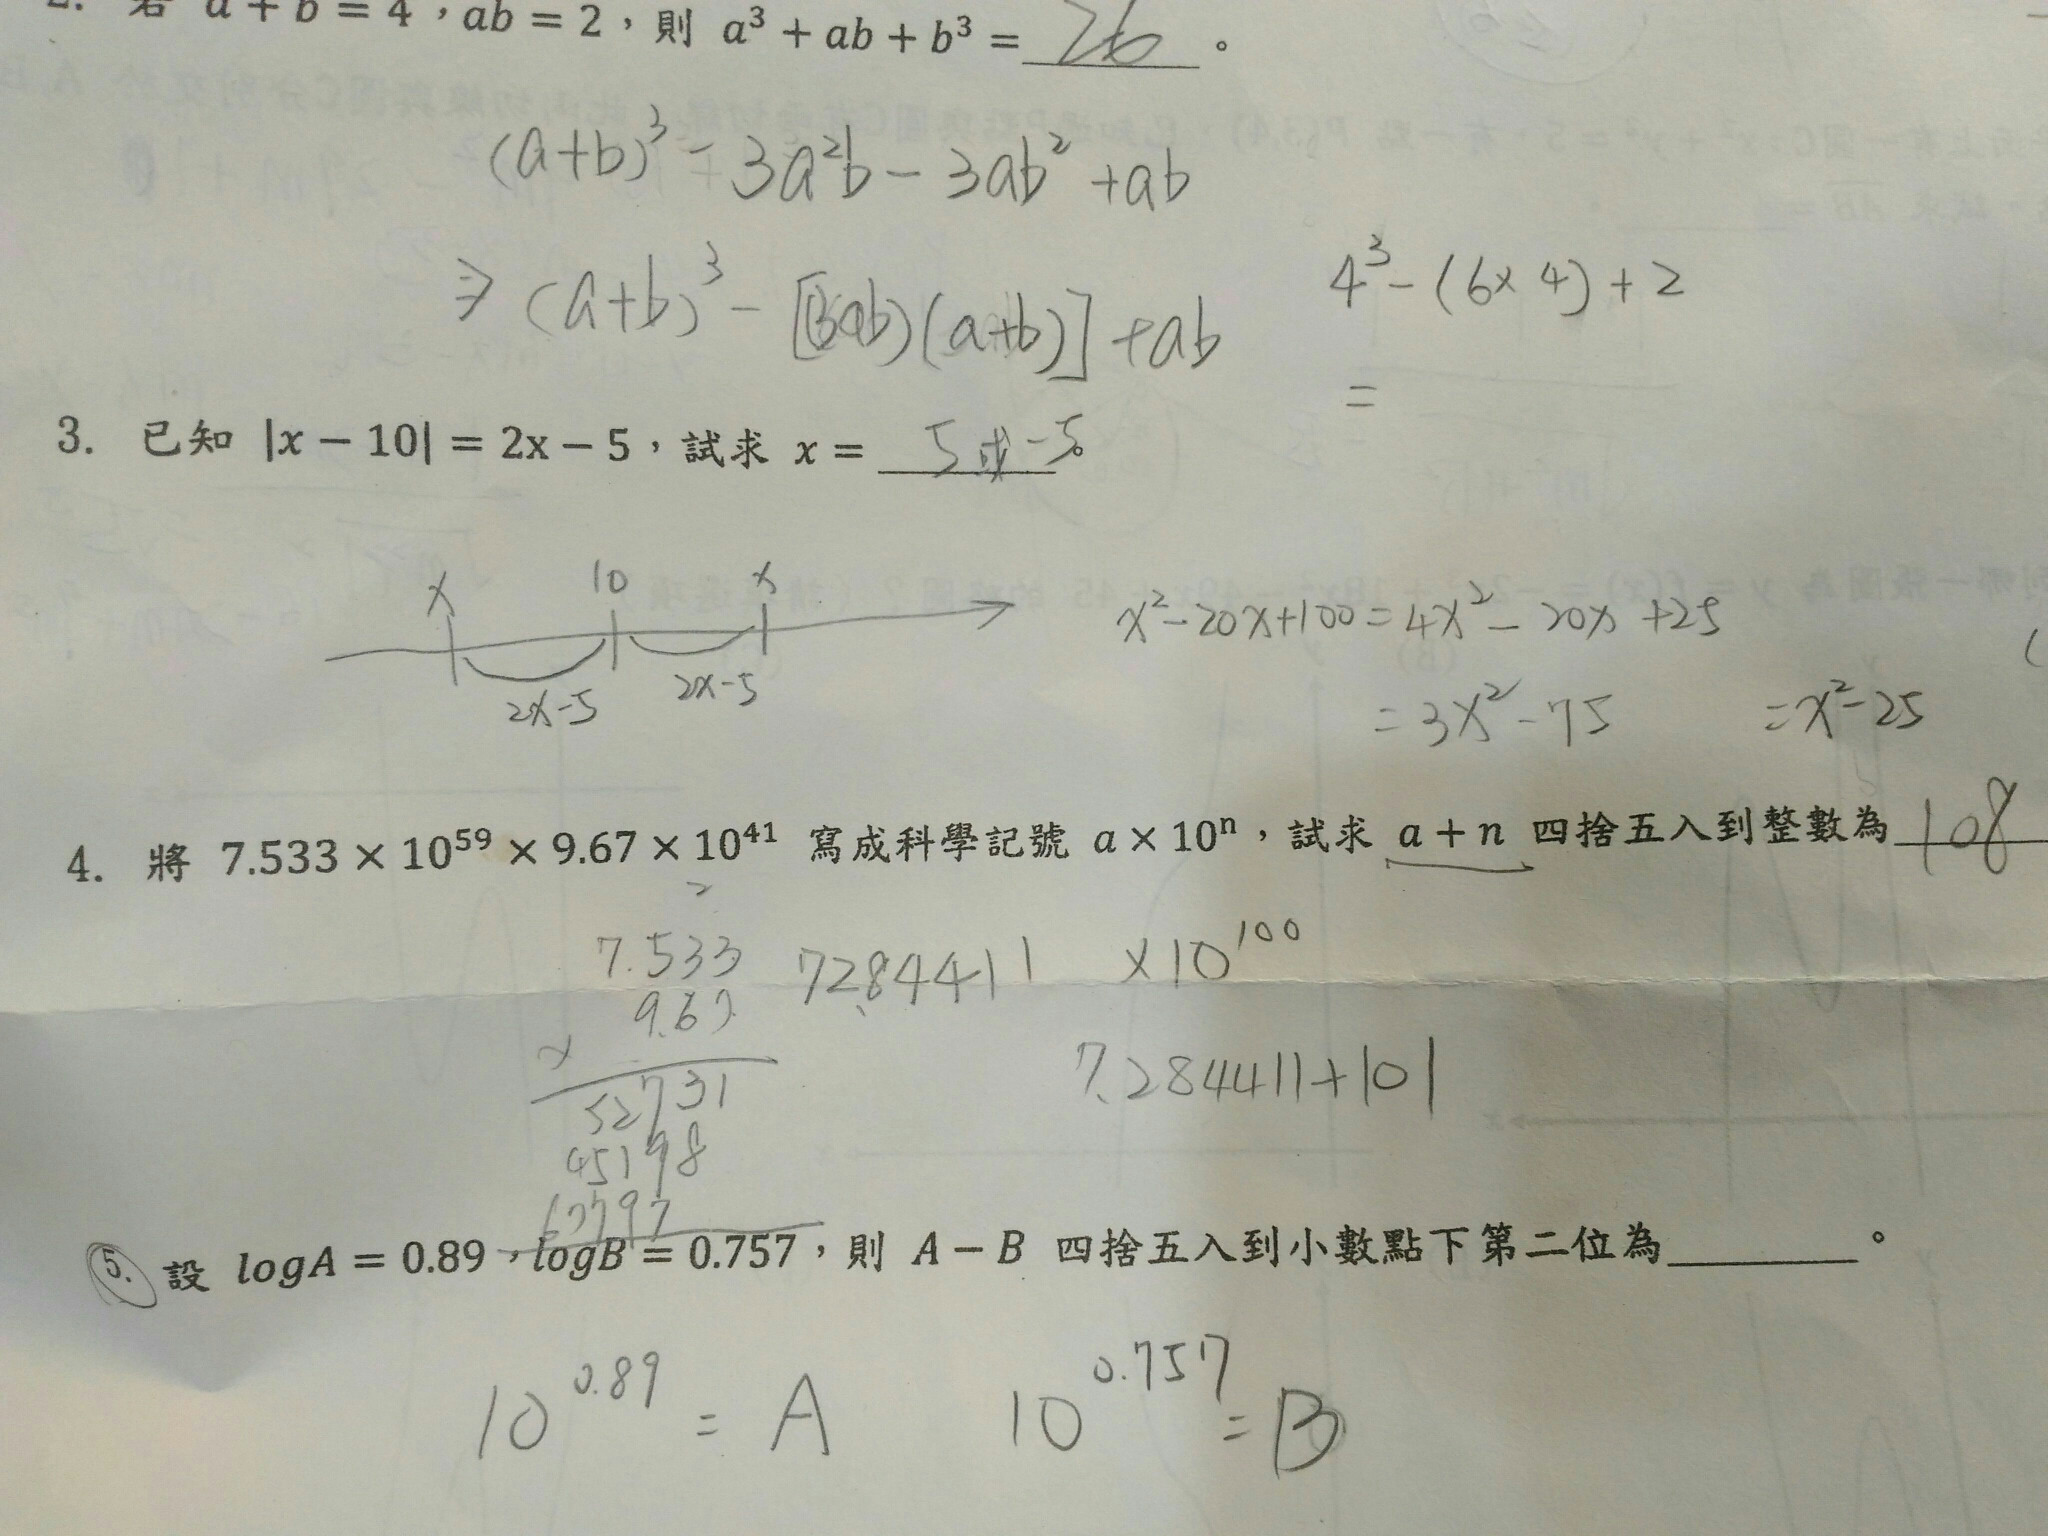 2. 若 a + b = 4，ab = 2，則 a³ + ab + b³ = 26 。
(a+b)³ - 3a²b - 3ab² + ab
⇒ (a+b)³ - [(3ab)(a+b)] + ab
4³ - (6×4) + 2
=
3. 已知 |x − 10| = 2x − 5，試求 x = 5 或 -5。
x 10 x
2x-5 2x-5
x² - 20x + 100 = 4x² - 20x + 25
= 3x² - 75 = x² - 25
4. 將 7.533 × 10⁵⁹ × 9.67 × 10⁴¹ 寫成科學記號 a × 10ⁿ，試求 a + n 四捨五入到整數為 108
7.533 72.84411 ×10¹⁰⁰
× 9.67
52731 7.284411+101
45198
67797
5. 設 logA = 0.89，logB = 0.757，則 A − B 四捨五入到小數點下第二位為 。
10^0.89 = A 10^0.757 = B